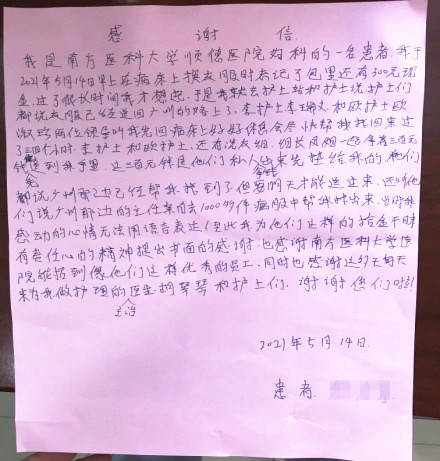 感谢信
我是南方医科大学顺德医院妇科的一名患者,我于
2021年5月14日早上在病床上换衣服时忘记了包里还有300元现
金,过了很长时间我才想起,于是我就去护士站和护士说,护士们
都说衣服已经送回广州的路上了,李护士李瑞文和欧护士欧
淑玲两位领导叫我先回病床上好好休息会尽快帮我找回来过
了三四个小时,李护士和欧护士,还有洗衣组,组长凤娟一起拿着三百元
钱送到我手里,这三百元钱是他们私人拿钱出来先垫给我的,他们
都说广州那边已经帮我找到了但要明天才能送过来,还
们说广州那边的主任亲自去1000多件病服中帮我找出来,当时我
感动的心情无法用语言表达!在此我为他们这样的拾金不昧
有责任心的精神提出书面的感谢,也感谢南方医科大学医
院能招到像他们这样优秀的员工,同时也感谢这几天每天
来为我做护理的医生胡琴琴和护士们,谢谢您们!
2021年5月14日.
患者.